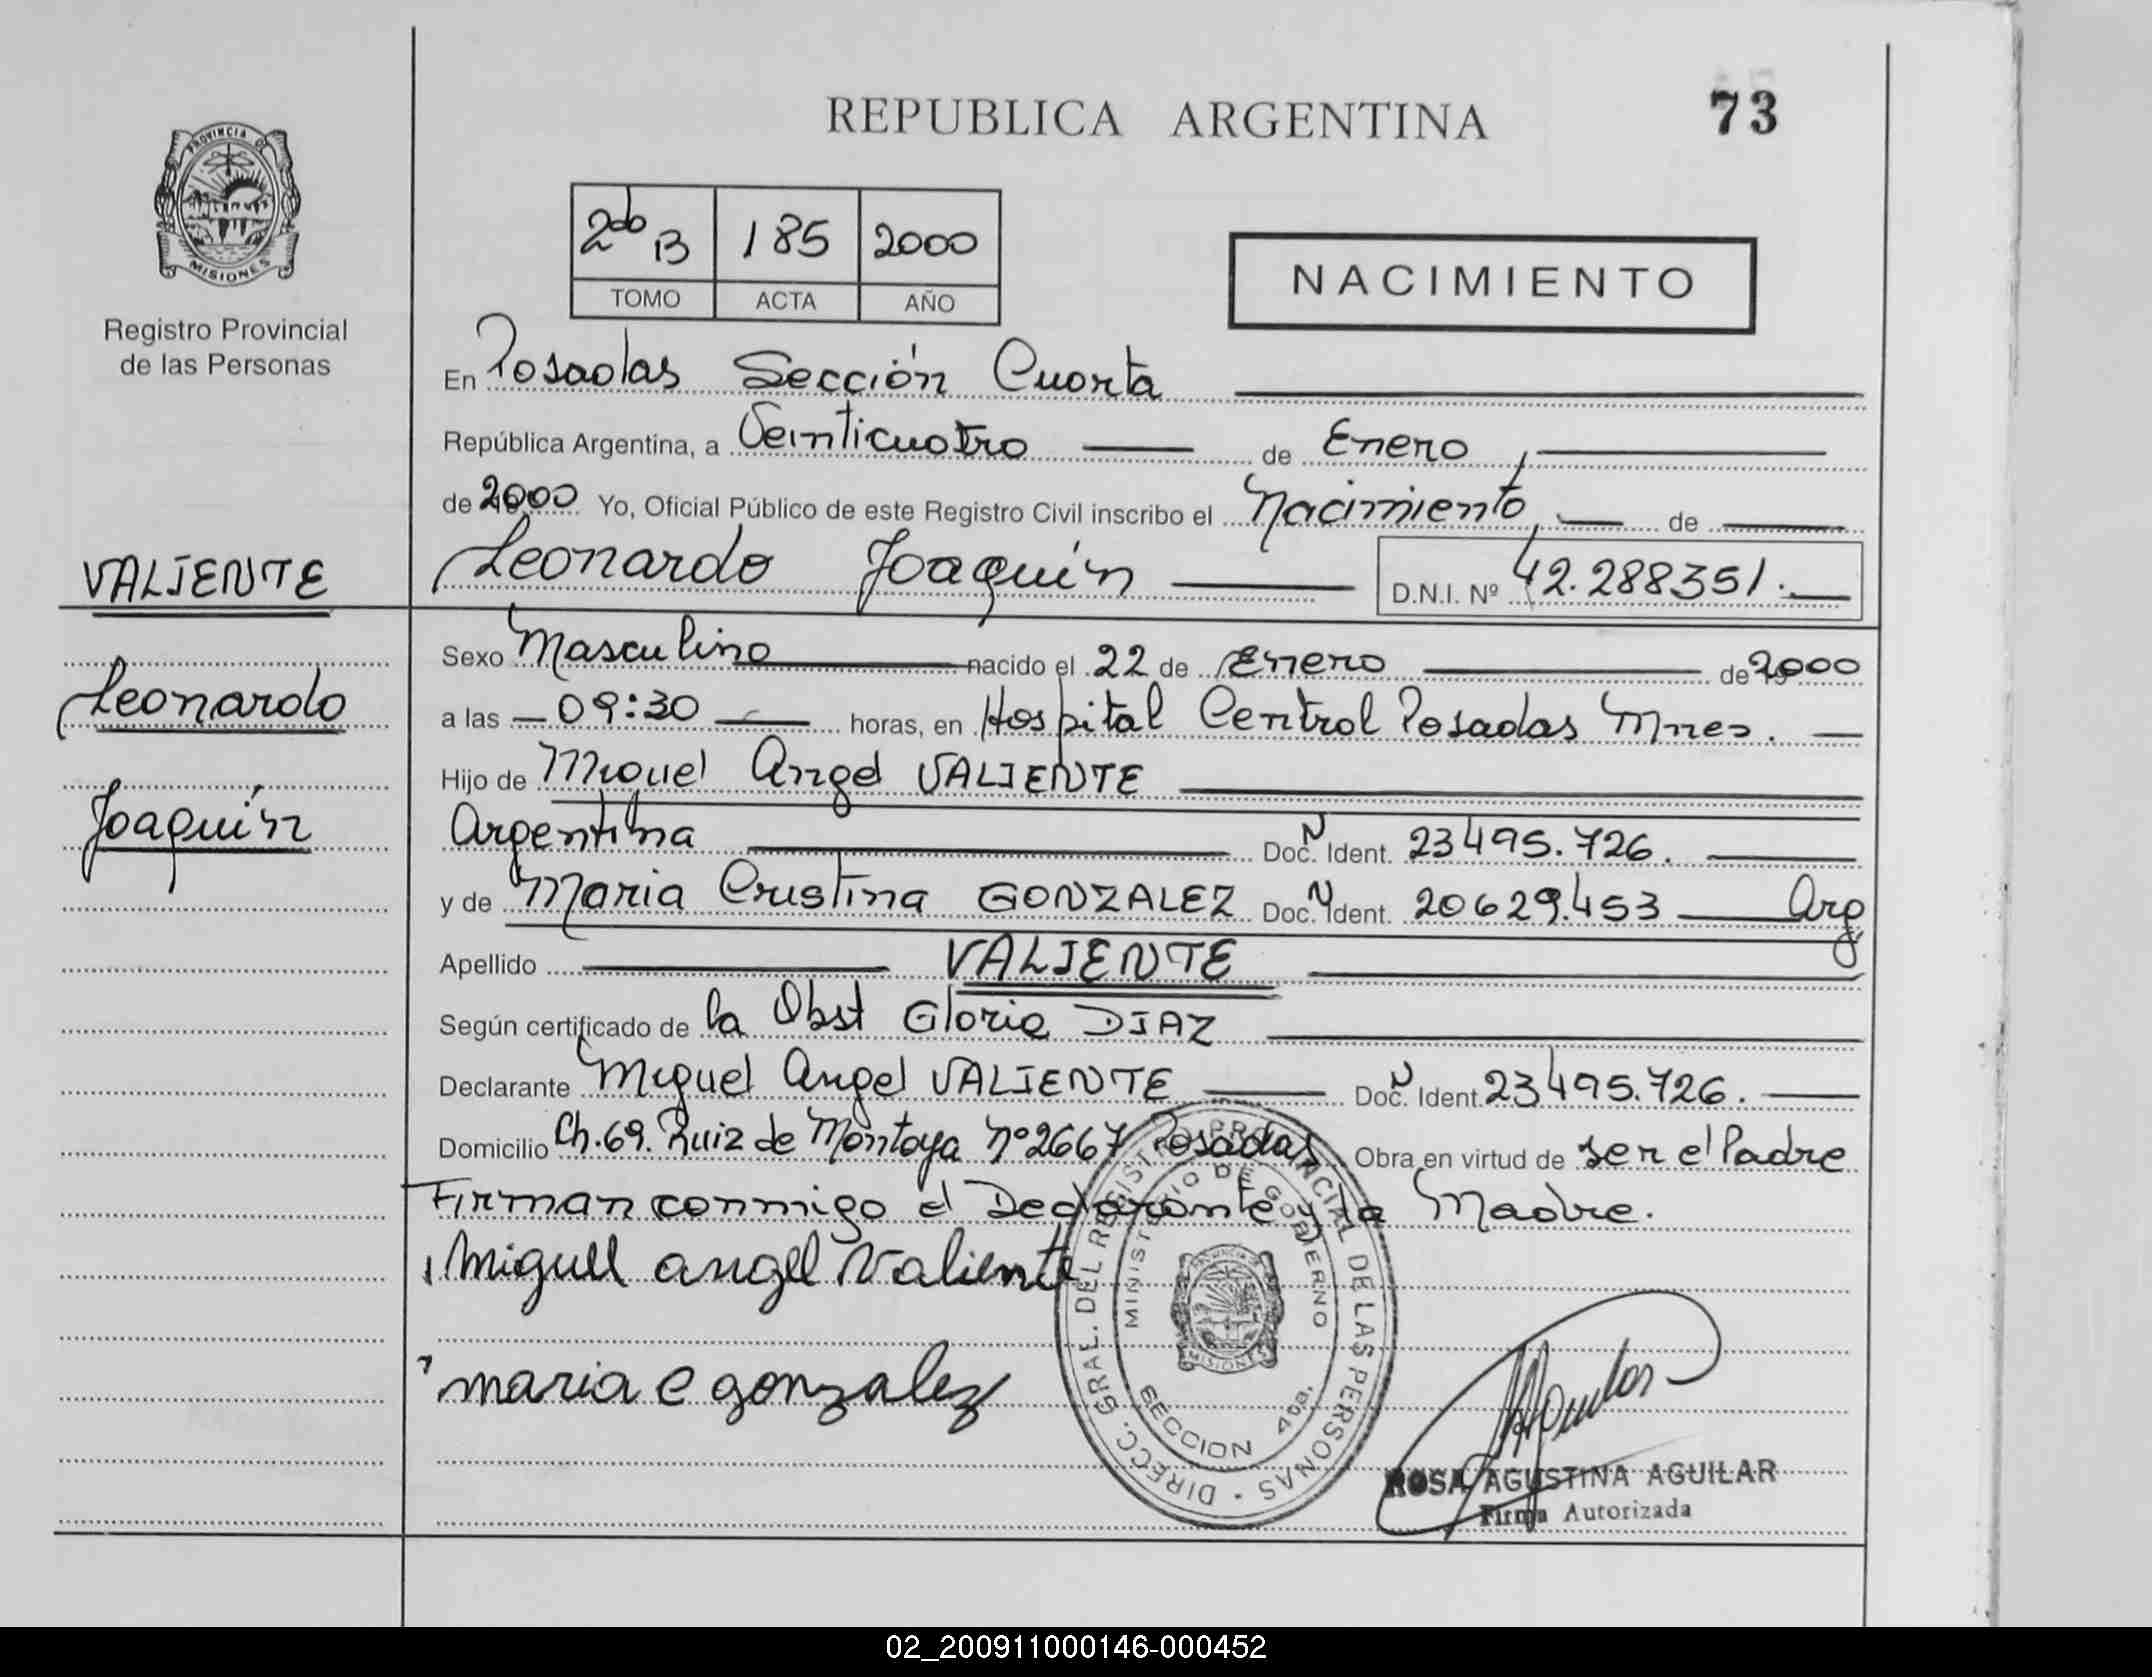 REPUBLICA ARGENTINA
73
PROVINCIA DE
MISIONES
Registro Provincial
de las Personas
2do B 185 2000
TOMO ACTA AÑO
NACIMIENTO
En Posadas Sección Cuarta
República Argentina, a Veinticuatro de Enero,
de 2000 Yo, Oficial Público de este Registro Civil inscribo el Nacimiento, de
VALIENTE
Leonardo Joaquín D.N.I. Nº 42.288351.
Sexo Masculino nacido el 22 de Enero de 2000
Leonardo
a las 09:30 horas, en Hospital Central Posadas Mnes.
Hijo de Miguel Angel VALIENTE
Joaquín
Argentina Doc. N Ident. 23495.726.
y de Maria Cristina GONZALEZ Doc. N Ident. 20629.453 Arg
Apellido VALIENTE
Según certificado de la Obst Gloria DIAZ
Declarante Miguel Angel VALIENTE Doc. N Ident. 23495.726.
Domicilio Ch.69. Ruiz de Montoya Nº2667 Posadas Obra en virtud de ser el Padre
Firman conmigo el Declarante y la Madre.
Miguel angel Valiente
maria c gonzalez
DIRECC. GRAL. DEL REGISTRO PROVINCIAL DE LAS PERSONAS
MINISTERIO DE GOBIERNO
MISIONES
SECCION 4ta.
ROSA AGUSTINA AGUILAR
Firma Autorizada
02_200911000146-000452